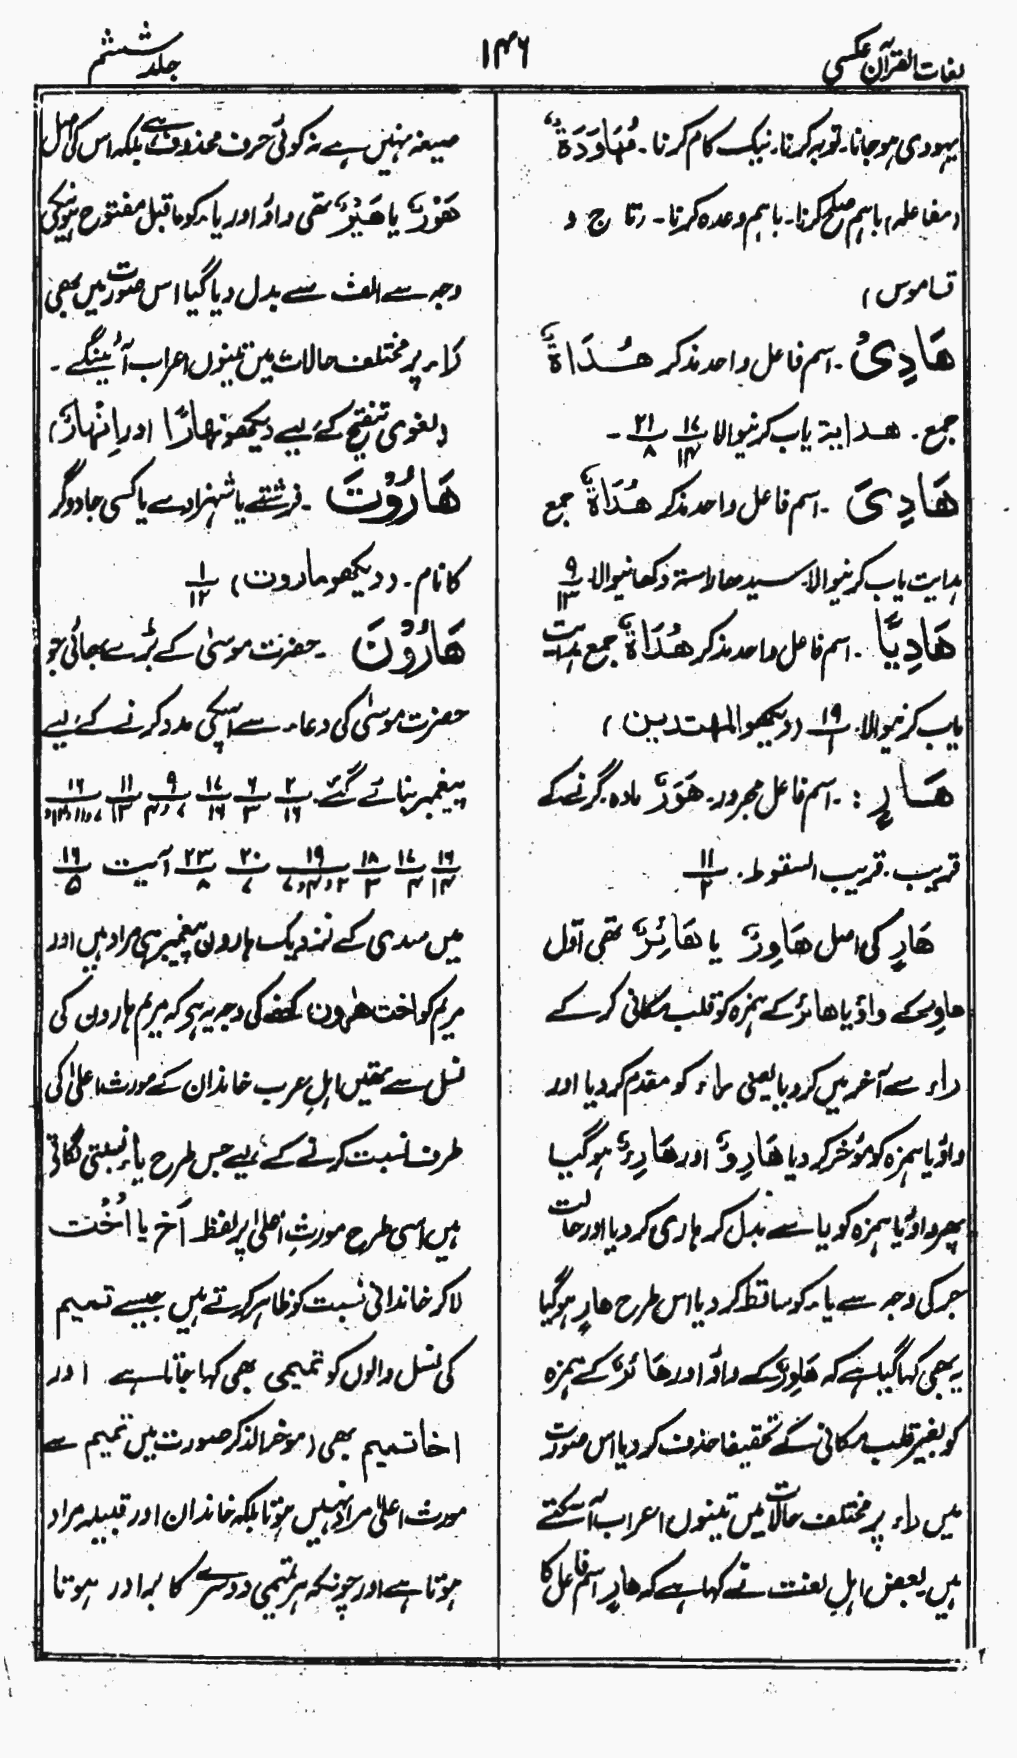 لغات القرآن عکسی
۱۴۶
جلد ششم
یہودی ہوجانا۔ توبہ کرنا۔ نیک کام کرنا۔ مُهَاوَدَةٌ
(مفاعلہ) باہم صلح کرنا۔ باہم وعدہ کرنا۔ (تاج و
قاموس)
هَادِیْ ۔ اسم فاعل واحد مذکر هُدَاةٌ
جمع۔ هدایة یاب کرنیوالا ۱۷/۱۴ ۲۱/۸ ۔
هَادِیَ ۔ اسم فاعل واحد مذکر هُدَاةٌ جمع
ہدایت یاب کرنیوالا۔ سیدھا راستہ دکھانیوالا۔ ۹/۱۳
هَادِیًا ۔ اسم فاعل واحد مذکر هُدَاةٌ جمع ہدایت
یاب کرنیوالا۔ ۱۹/۱ (دیکھو المهتدین)
هَارٍ : ۔ اسم فاعل مجرور۔ هَوْرٌ مادہ۔ گرنے کے
قریب۔ قریب السقوط۔ ۱۱/۲
هَارٍ کی اصل هَاوِرٌ یا هَائِرٌ تھی اول
هاوِرٌ کے واؤ یا هائرٌ کے ہمزہ کو قلب مکانی کر کے
راء سے آخر میں کر دیا یعنی راء کو مقدم کر دیا اور
واؤ یا ہمزہ کو مؤخر کر دیا هَارِوٌ اور هَارِءٌ ہو گیا
پھر واؤ یا ہمزہ کو یا سے بدل کر ہاری کر دیا اور حالت
جر کی وجہ سے یاء کو ساقط کر دیا اس طرح هارٍ ہو گیا
یہ بھی کہا گیا ہے کہ هَاوِرٌ کے واؤ اور هَائرٌ کے ہمزہ
کو بغیر قلب مکانی کے تخفیفا حذف کر دیا اس صورت
میں راء پر مختلف حالات میں تینوں اعراب آ سکتے
ہیں بعض اہل لغت نے کہا ہے کہ هارٍ اسم فاعل کا
صیغہ نہیں ہے نہ کوئی حرف محذوف ہے بلکہ اس کی اصل
هَوْرٌ یا هَیْرٌ تھی واؤ اور یاء کو ماقبل مفتوح ہونیکی
وجہ سے الف سے بدل دیا گیا اس صورت میں بھی
راء پر مختلف حالات میں تینوں اعراب آئینگے۔
(لغوی تنقیح کے لیے دیکھو نهارًا اور اِنْهَارٌ)
هَارُوْتَ ۔ فرشتے یا شہزادے یا کسی جادوگر
کا نام۔ (دیکھو ماروت) ۱/۱۲
هَارُوْنَ ۔ حضرت موسیٰ کے بڑے بھائی جو
حضرت موسیٰ کی دعاء سے اسکی مدد کرنے کے لیے
پیغمبر بنائے گئے۔ ۲/۱۶ ۶/۳ ۱۷/۱۶ ۹/۴و۷ ۱۱/۱۳ ۱۶
۱۶/۱۴ ۱۷/۴ ۱۸/۳ ۱۹/۲و۴و۷ ۲۰/۷ ۲۳/۸ آیت ۱۶/۵
میں سدی کے نزدیک ہارون پیغمبر ہی مراد ہیں اور
مریم کو اخت هٰرون کہنے کی وجہ یہ ہے کہ مریم ہارون کی
نسل سے تھیں اہل عرب خاندان کے مورث اعلیٰ کی
طرف نسبت کرنے کے لیے جس طرح یاء نسبتی لگاتے
ہیں اسی طرح مورثِ اعلیٰ پر لفظ اَخ یا اُخْت
لاکر خاندانی نسبت کو ظاہر کرتے ہیں جیسے تمیم
کی نسل والوں کو تمیمی بھی کہا جاتا ہے اور
اخا تمیم بھی (موخر الذکر صورت میں تمیم سے
مورث اعلیٰ مراد نہیں ہوتا بلکہ خاندان اور قبیلہ مراد
ہوتا ہے اور چونکہ ہر تمیمی دوسرے کا برادر ہوتا